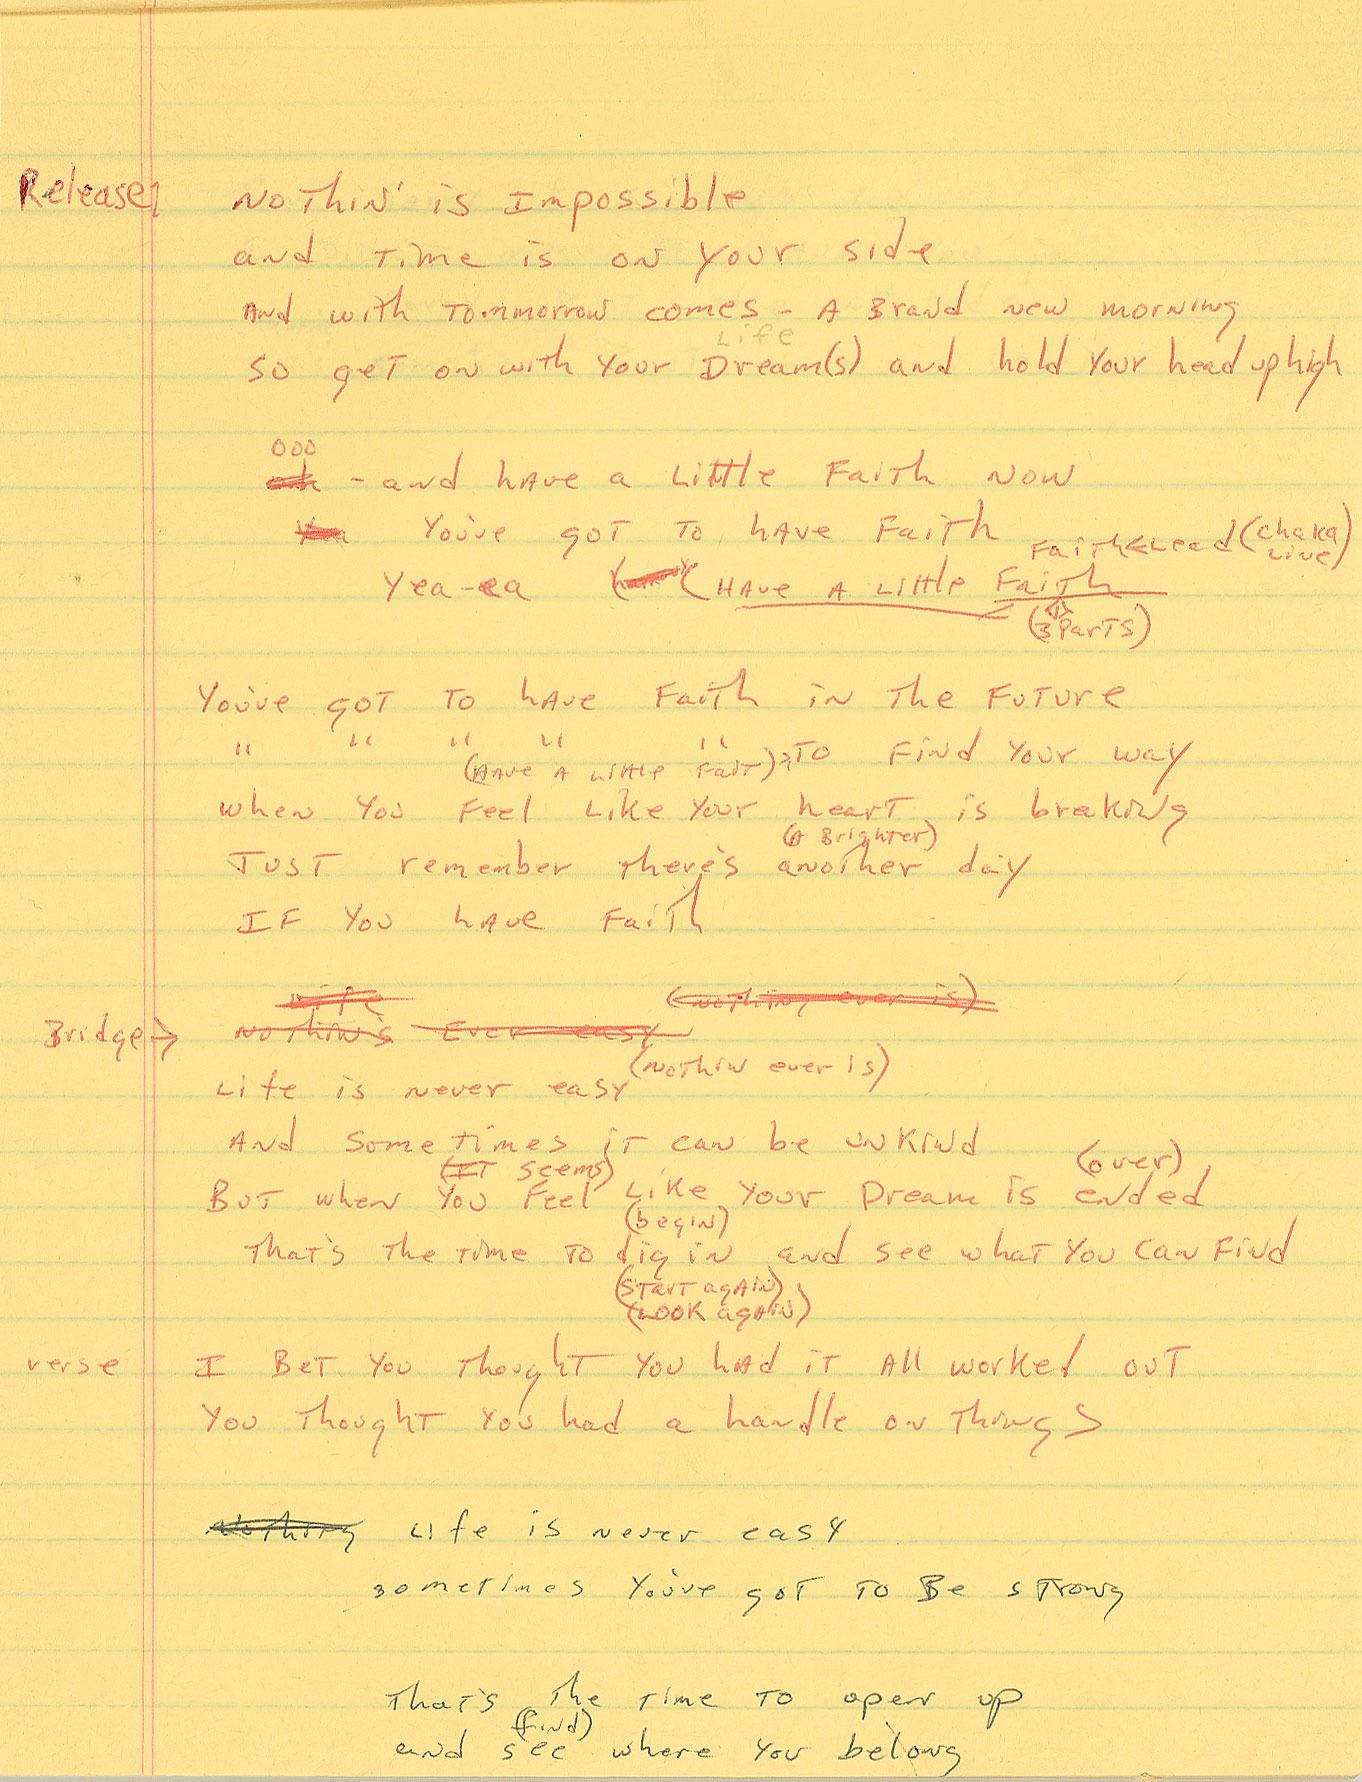 Release
Nothin' is Impossible
and Time is on Your side
And with Tommorrow comes - A Brand new morning
Life
so get on with Your Dream(s) and hold Your head up high
ooo
oh - and have a Little Faith Now
You've got To have Faith
Faith < Lead (chaka Live)
Yea-ea (Have A Little Faith
(3 Parts)
You've got To have Faith in The Future
" " " " " To Find Your way
(Have A Little Fait)
when You Feel Like Your heart is breaking
(A Brighter)
Just remember There's another day
If You have Faith
Life (Nothing ever is)
Bridge → Nothin's Ever easy
(Nothin ever is)
Life is never easy
And Sometimes iT can be unkind
(IT seems) (over)
But when You Feel Like Your Dream is ended
(begin)
That's The Time To dig in and see whaT You Can Find
(Start again)
(Look again)
verse I BeT You ThoughT You had iT All worked ouT
You ThoughT You had a handle on Things
Nothing Life is never easy
sometimes You've goT To Be sTrong
ThaT's The Time To open up
(find)
and see where You belong